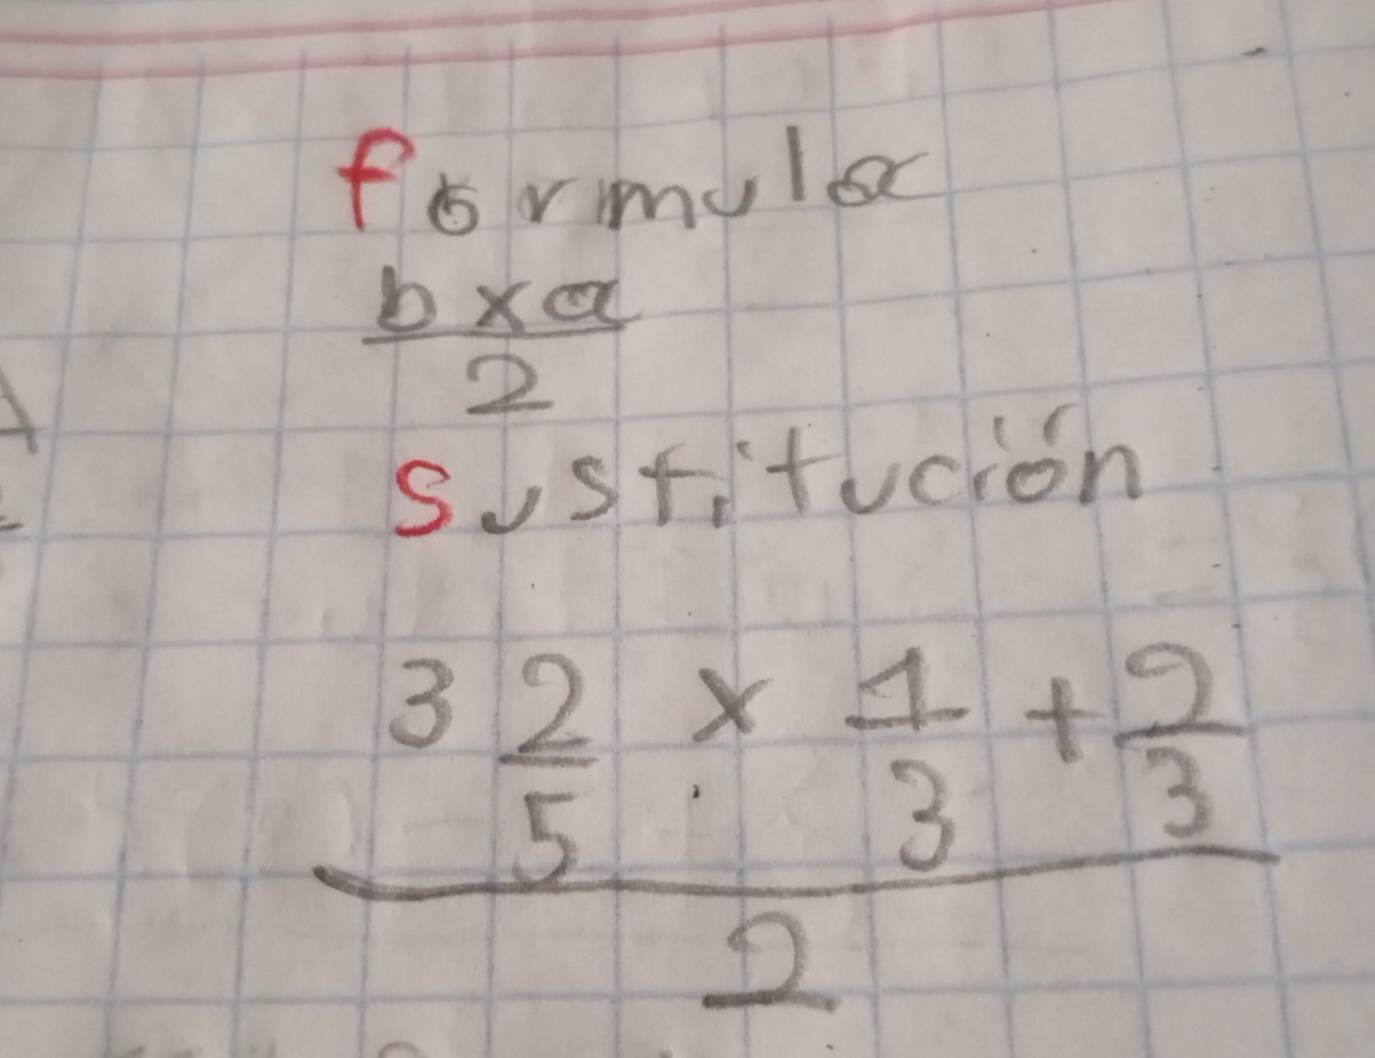 formula
b x a
2
sustitución
3 2/5 x 1/3 + 2/3
2